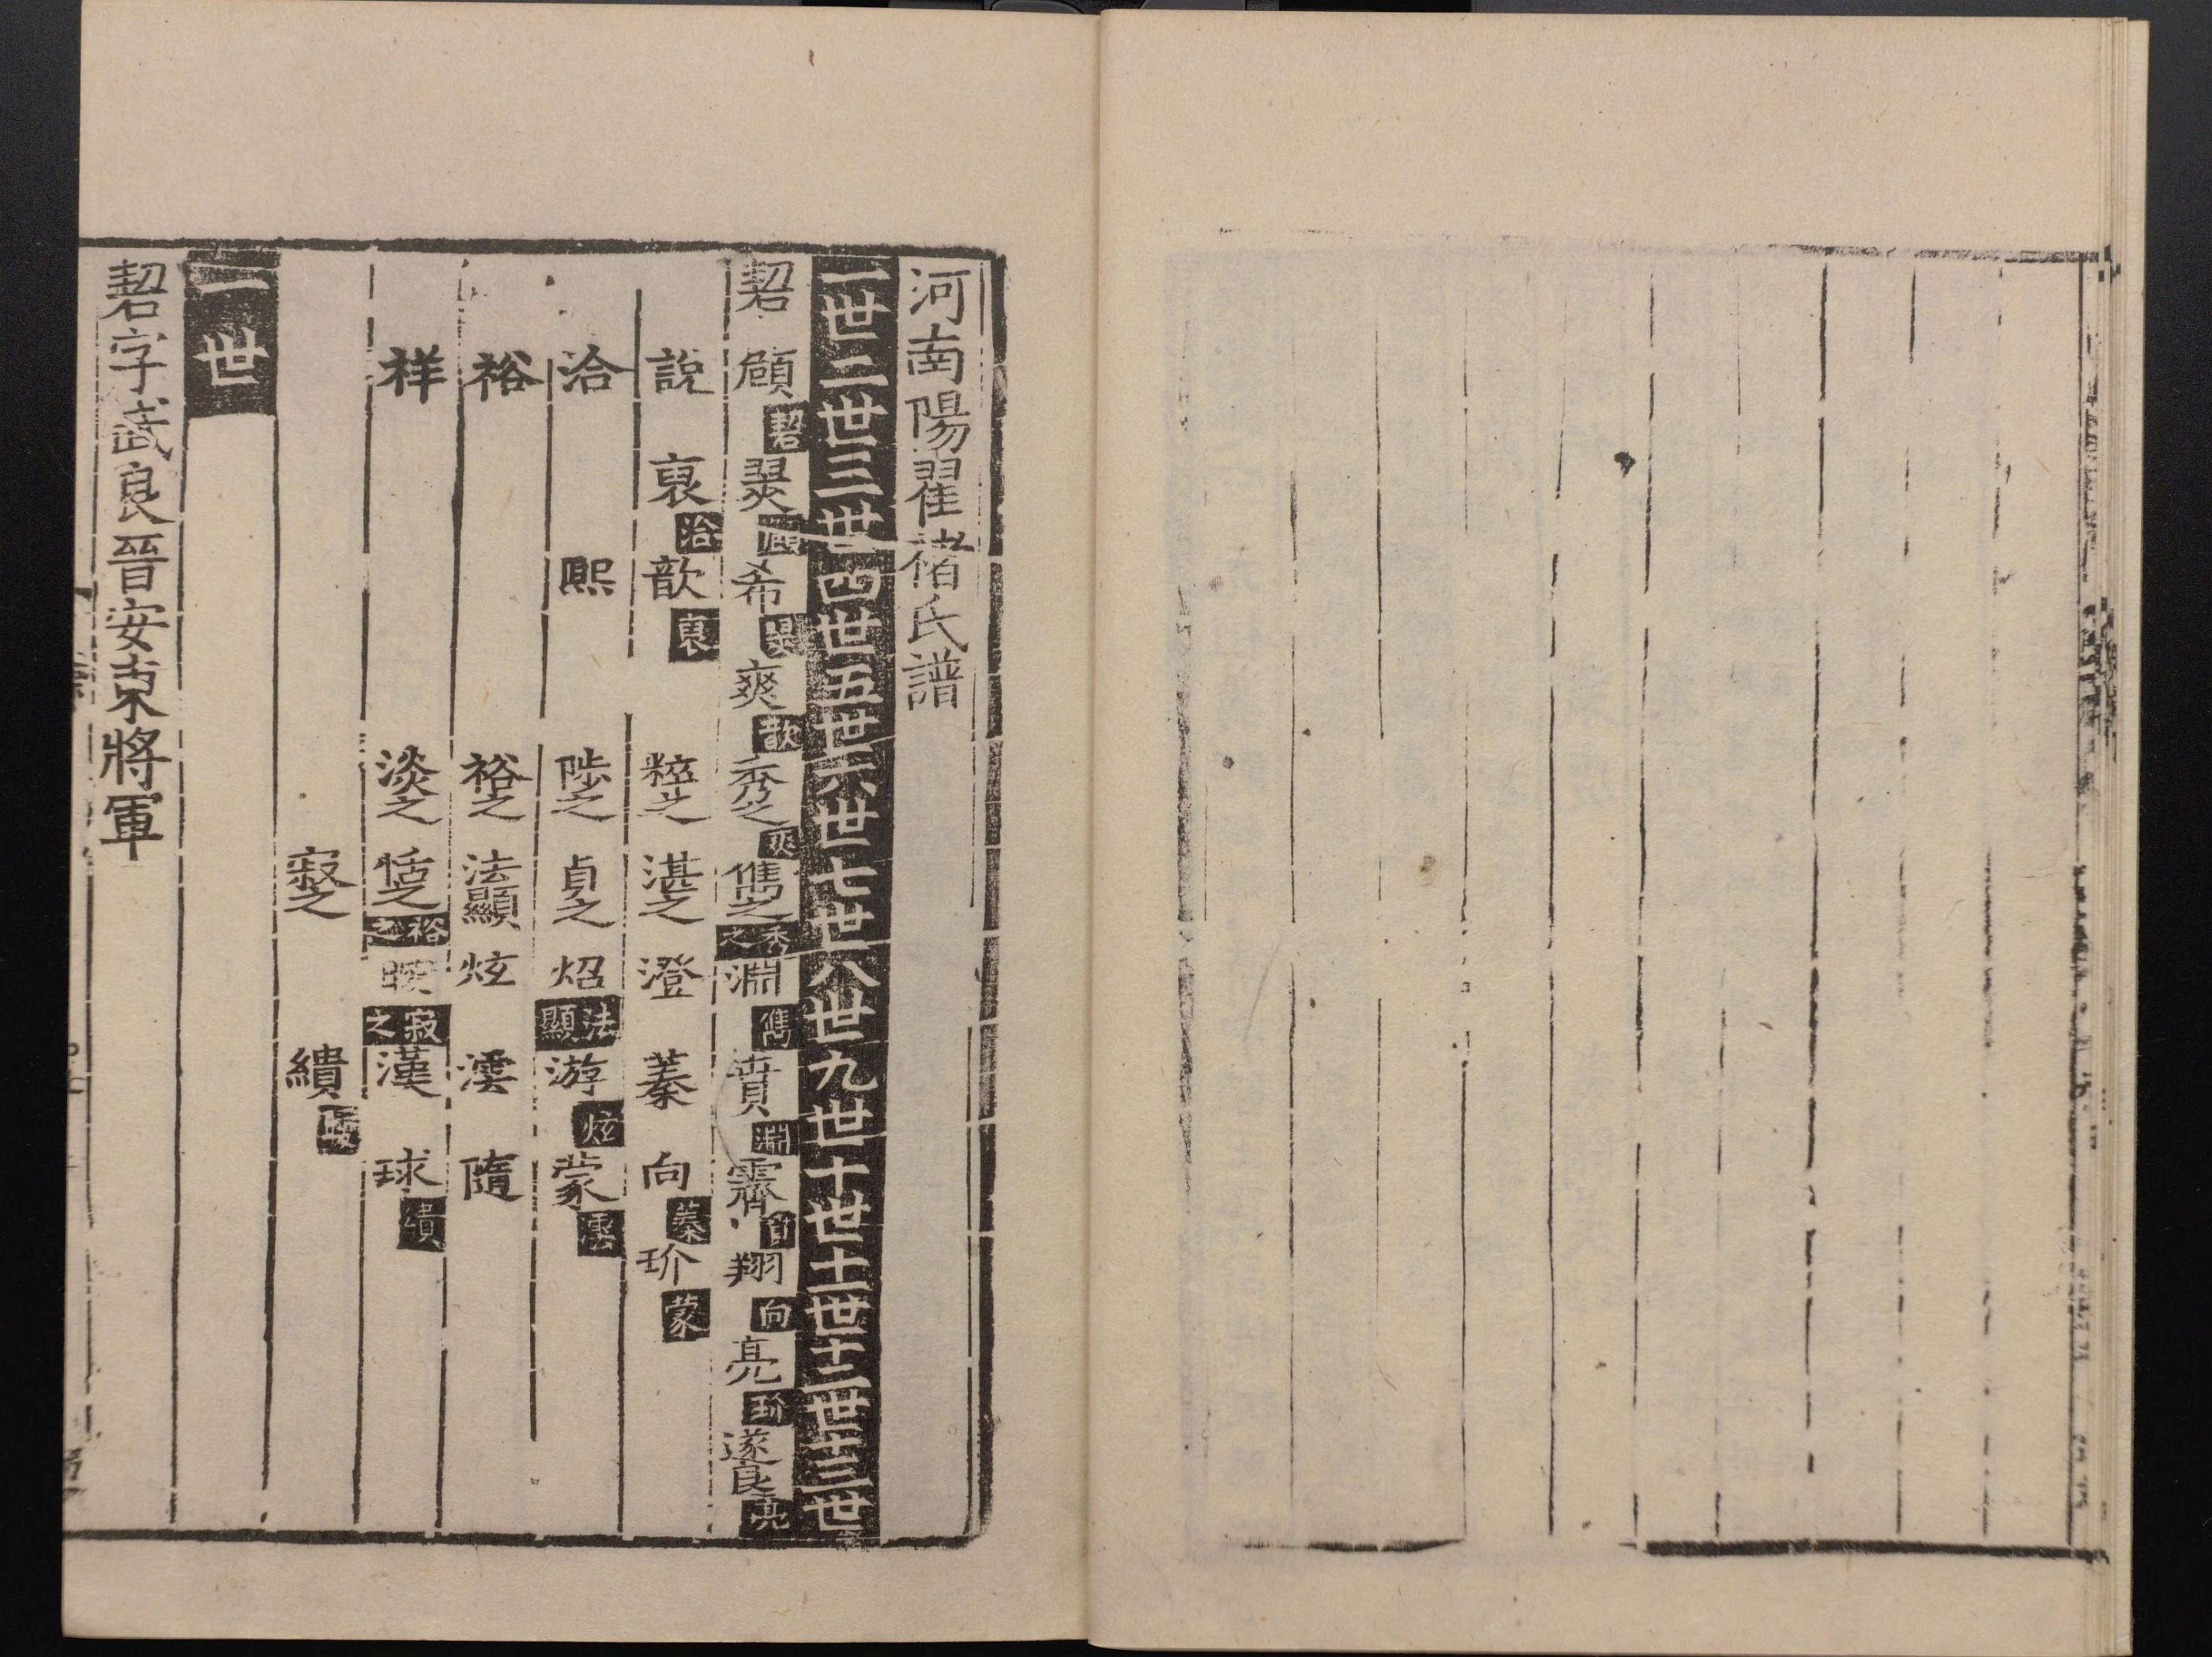 河南陽翟褚氏譜
一世二世三世四世五世六世七世八世九世十世十一世十二世十三世
䂮 頠 䂮 䂒 頠 希 䂒 爽 歆 秀之 爽 儁之 秀之 淵 儁 賁 淵 霽 賁 翔 向 亮 玠 遂良 亮
說 裒 洽 歆 裒 粹之 湛之 澄 蓁 向 蓁 玠 蒙
洽 熙 陟之 貞之 炤 法顯 游 炫 蒙 澐
裕 裕之 法顯 炫 澐 隨
祥 淡之 恬之 裕之 曖 寂之 漢 球 繢
寂之 繢 曖
一世
䂮字武良晉安東將軍